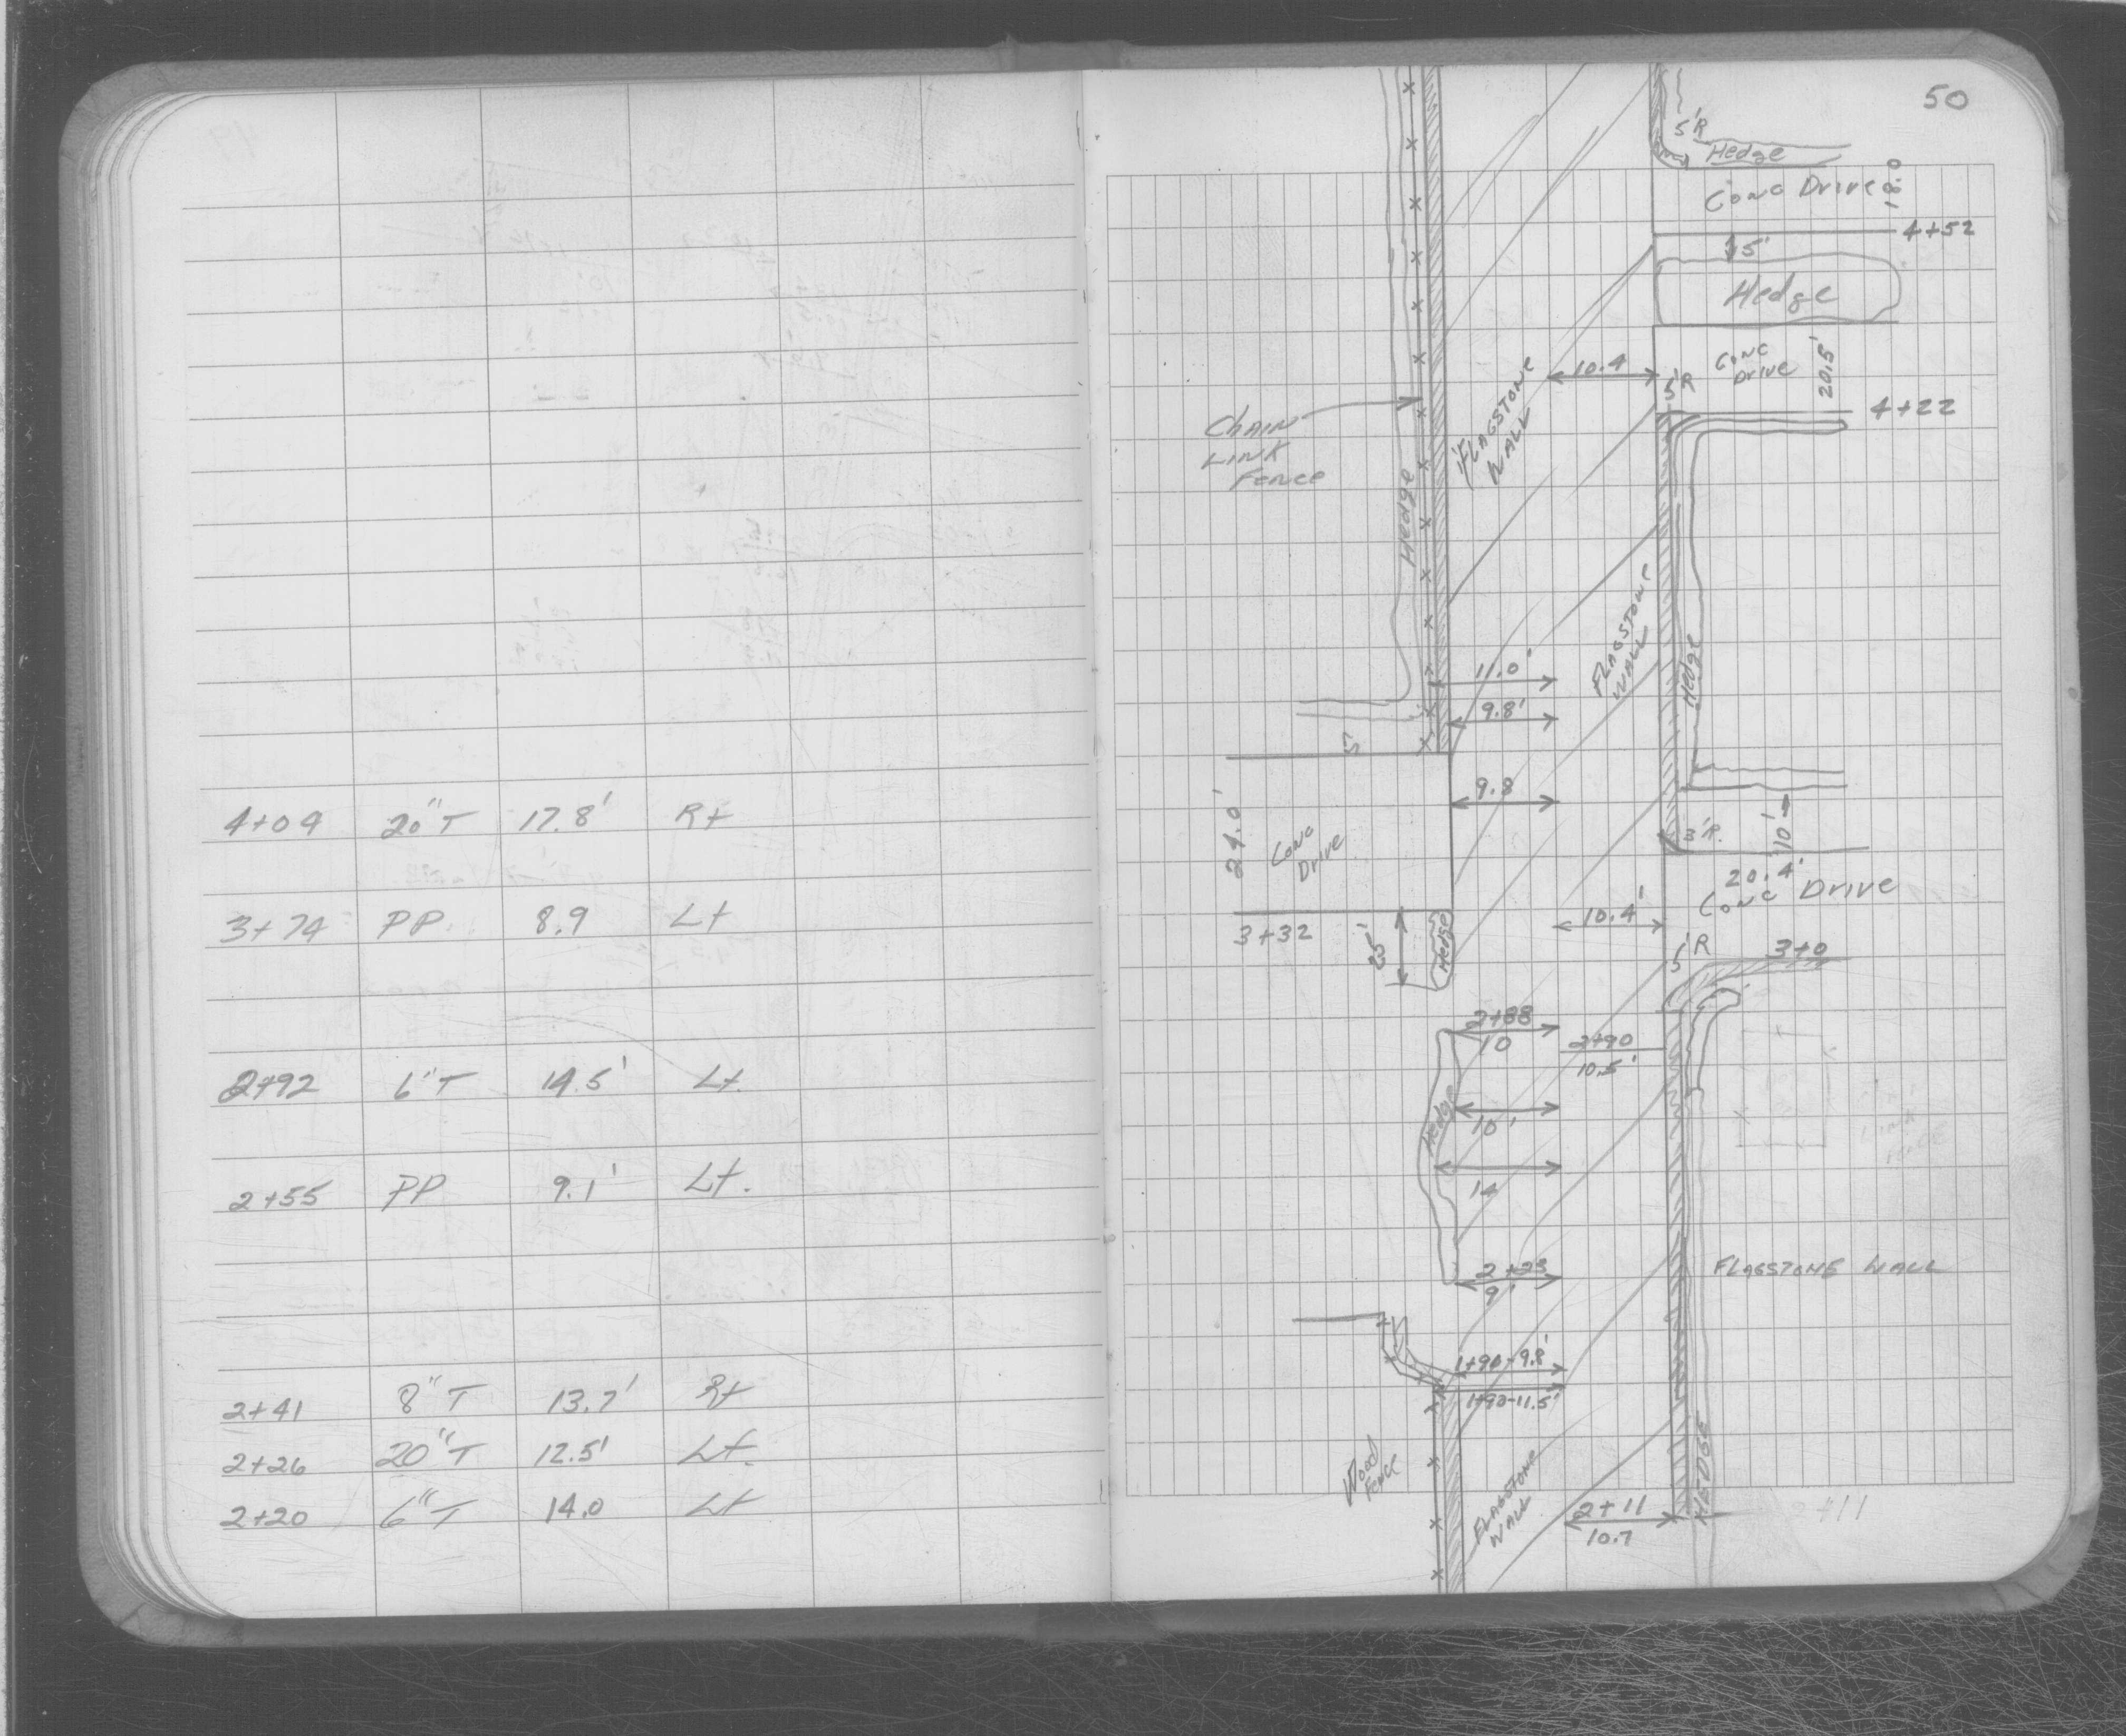 4+09 20"T 17.8' Rt
3+74 PP 8.9 Lt
2+92 6"T 14.5' Lt.
2+55 PP 9.1' Lt.
2+41 8"T 13.7' Rt
2+26 20"T 12.5' Lt.
2+20 6"T 14.0 Lt
50
5'R
Hedge
Conc Drive
18.0
4+52
5'
Hedge
10.4
Conc
Drive
20.5'
5'R
4+22
Chain
Link
Fence
Hedge
Flagstone
Wall
Flagstone
Wall
Hedge
11.0'
9.8'
5
9.8
24.0'
Conc
Drive
3'R.
10'
20.4'
Conc Drive
10.4'
3+32
25'
Hedge
5'R
3+0
2+88
10
2+90
10.5'
Hedge
10'
14
2+23
9'
Flagstone Wall
1+90-9.8'
1+90-11.5'
Wood
Fence
Flagstone
Wall
2+11
10.7
Hedge
2+11